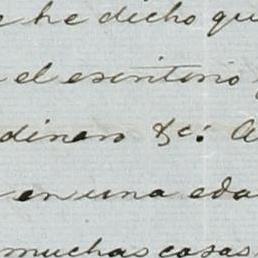 he dicho qu
el escritorio
dinero &c: A
en una eda
muchas cosas